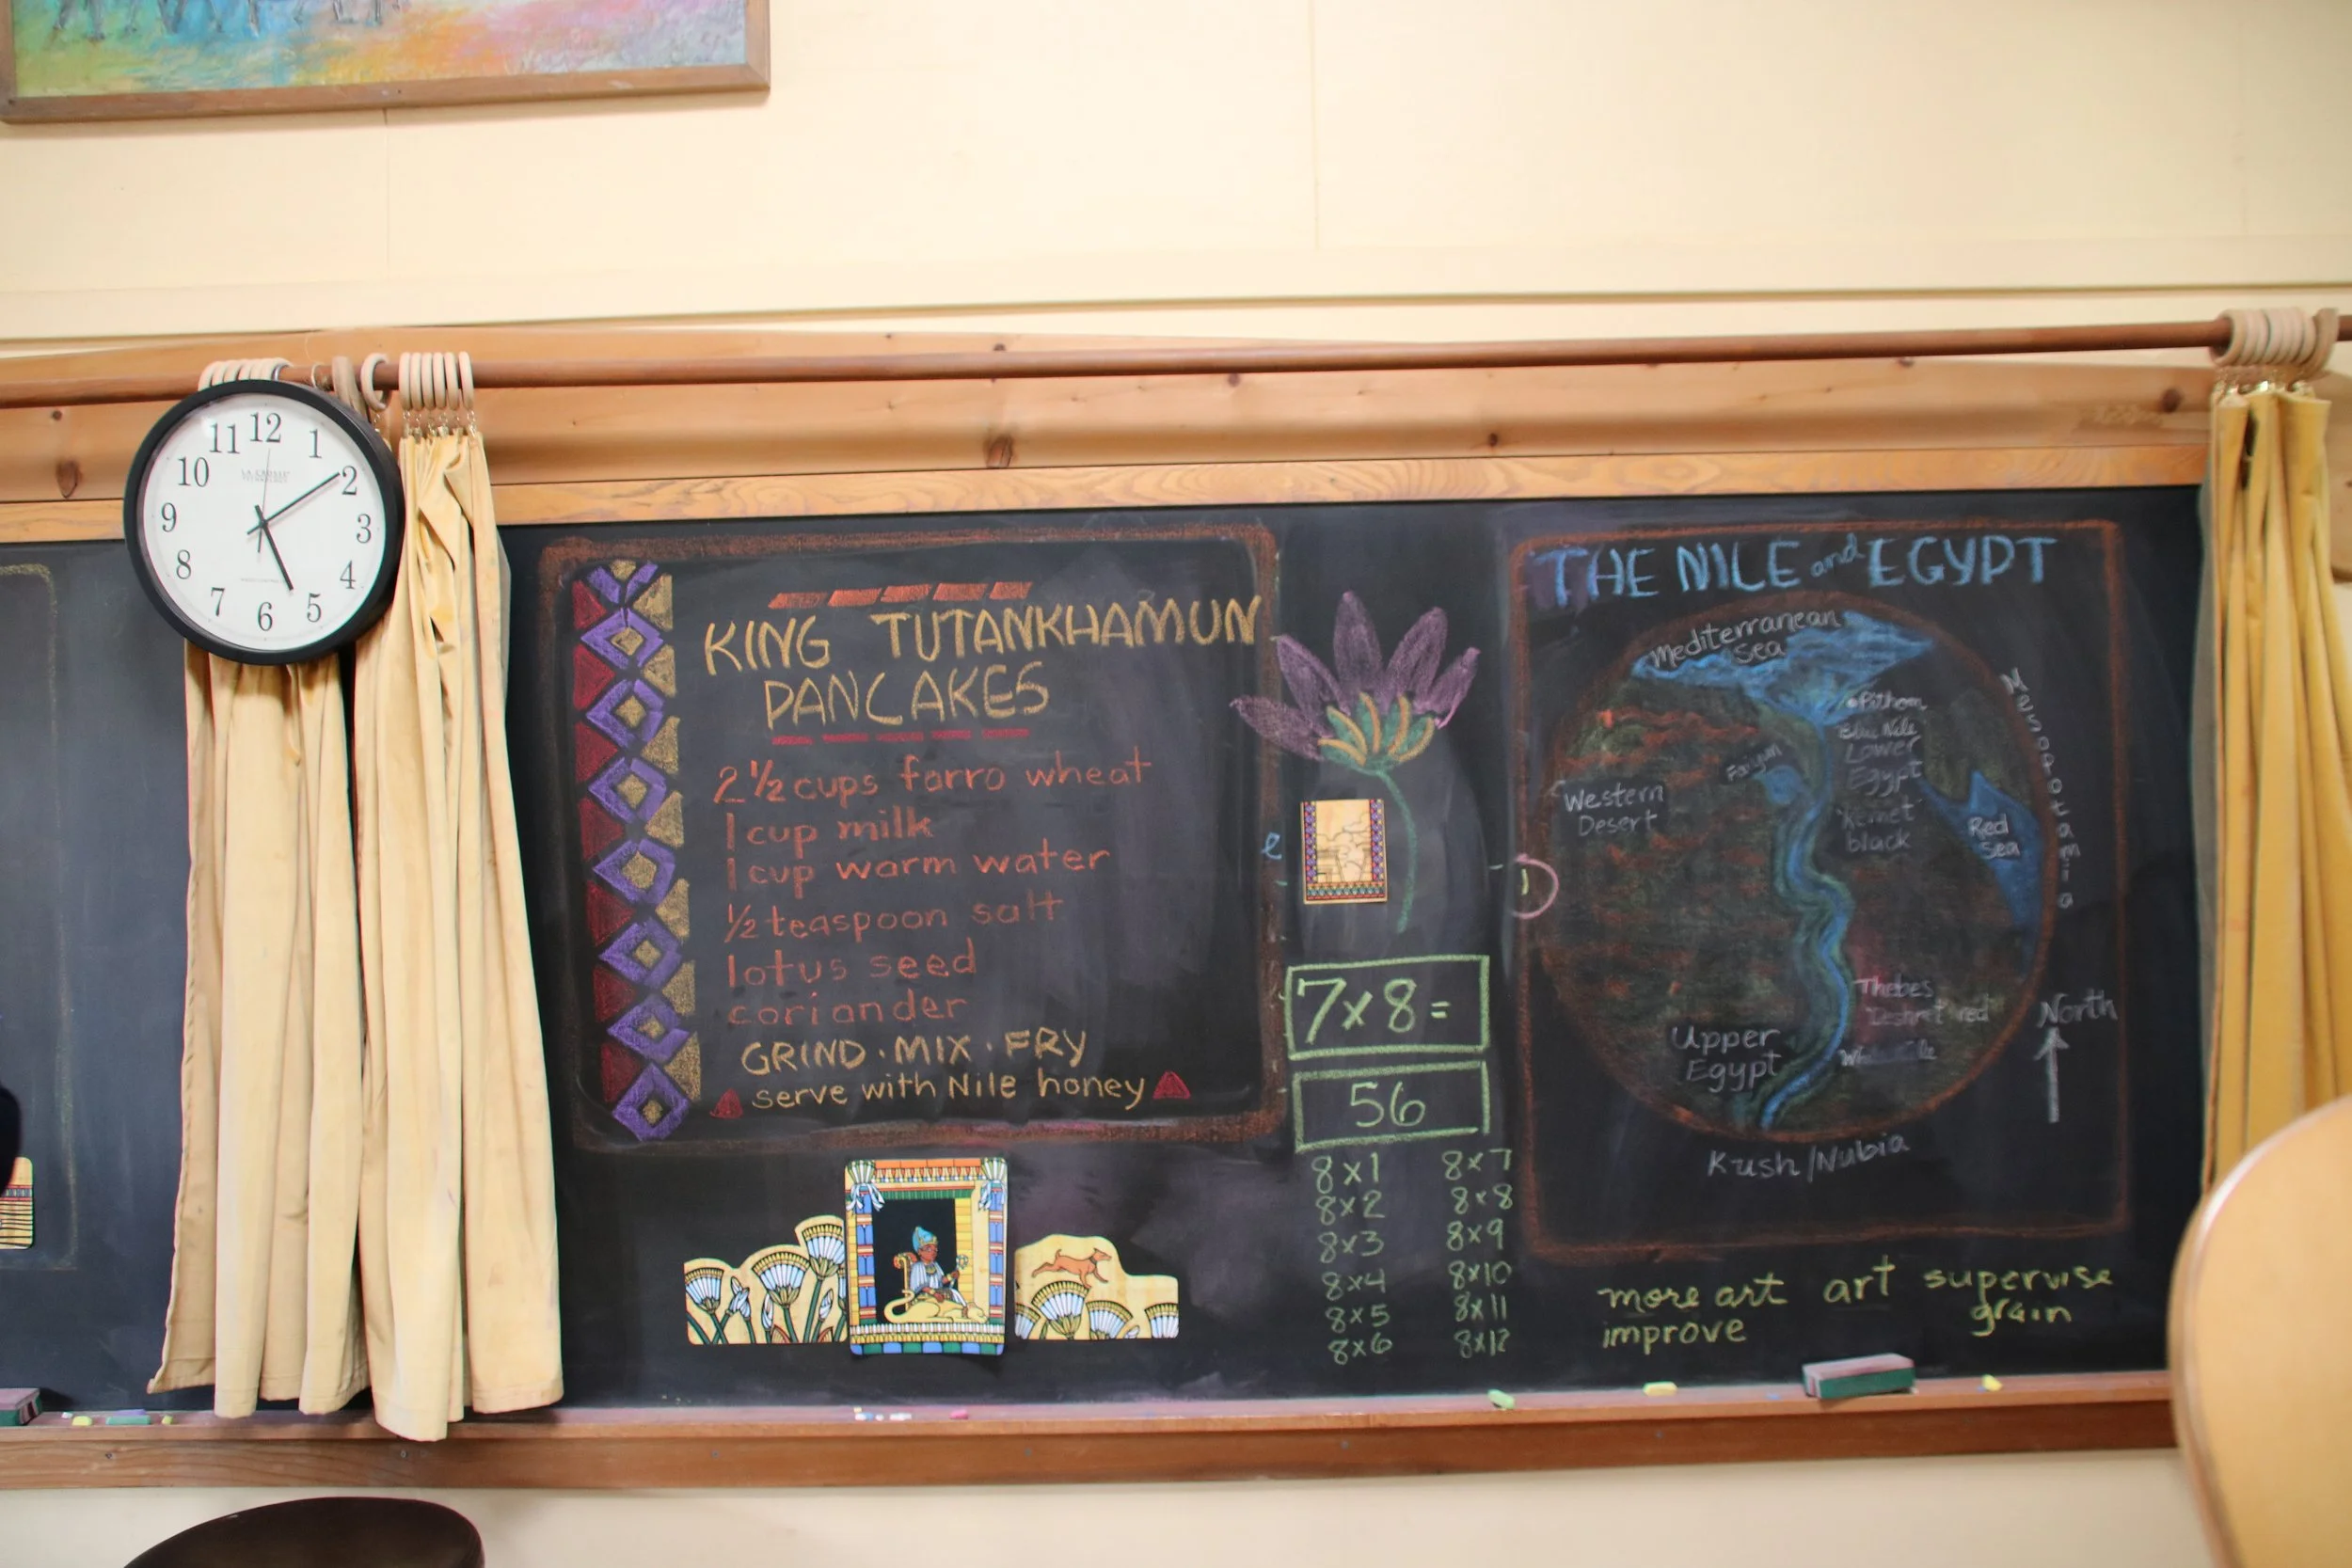 12
1
2
3
4
5
6
7
8
9
10
11
LA CROSSE
TECHNOLOGY
KING TUTANKHAMUN
PANCAKES
2 ½ cups farro wheat
1 cup milk
1 cup warm water
½ teaspoon salt
lotus seed
coriander
GRIND · MIX · FRY
serve with Nile honey
e
7x8=
56
8x1
8x2
8x3
8x4
8x5
8x6
8x7
8x8
8x9
8x10
8x11
8x12
THE NILE and EGYPT
Mediterranean
Sea
Pithom
Blue Nile
Lower
Egypt
"Kemet"
black
Faiyum
Western
Desert
Red
Sea
Mesopotamia
Thebes
"Deshret" red
White Nile
Upper
Egypt
North
Kush/Nubia
more art art supervise
improve grain